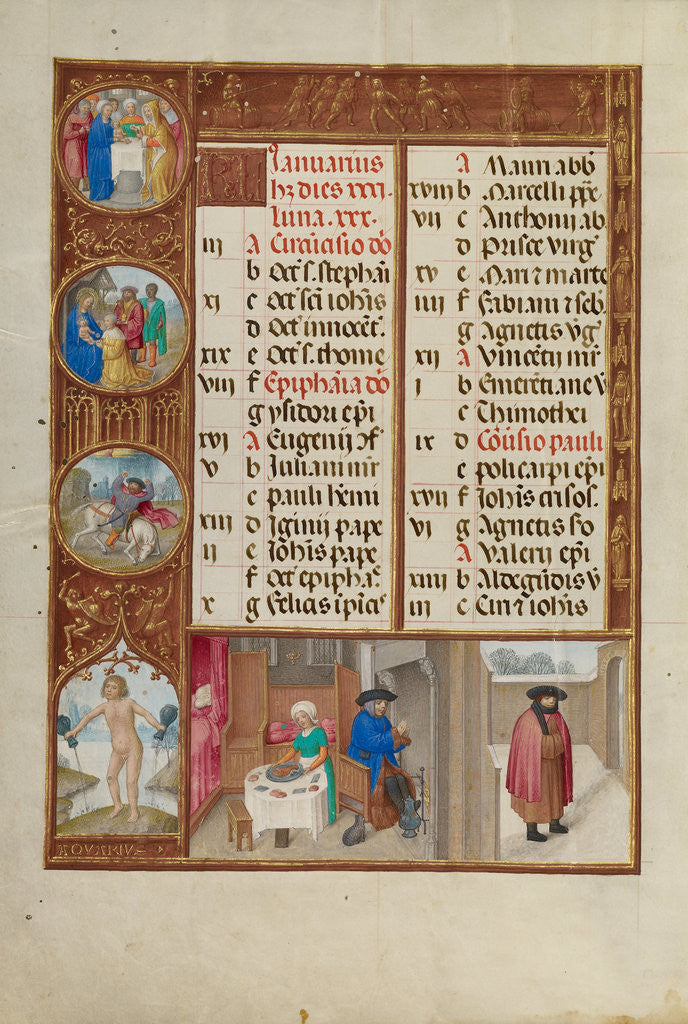 KL Januarius
hȝ dies xxxi.
luna. xxx.
iii A Circũcisio dõ
b Oct̃ s. stephãi
xi c Oct̃ scĩ iohĩs
d Oct̃ innocẽt.
xix e Oct̃ s. thome
viii f Epiphãia dõ
g ysidori epĩ
xvi A Eugenij ɔf̃
v b Juliani mr̃
c pauli hẽmi
xiii d Iginij pape
ii e Johĩs pape
f Oct̃ epiphãĩ
x g felicis ĩ pĩcĩs
A Mauri abb̃
xviii b Marcelli pp̃e
vii c Anthonij ab
d prisce virg̃
xv e Marĩ ⁊ marte
iiii f fabiani ⁊ seb̃.
g Agnetis ṽg̃
xii A Vincẽtij mr̃
i b Emerẽtiane v̾
c Thimothei
ix d Cõũsio pauli
e policarpi epĩ
xvii f Johĩs crisos.
vi g Agnetis s̃o
A Valerij epĩ
xiiii b Aldegũdis v̾
iii c Ciri ⁊ iohĩs
AQVARIVS